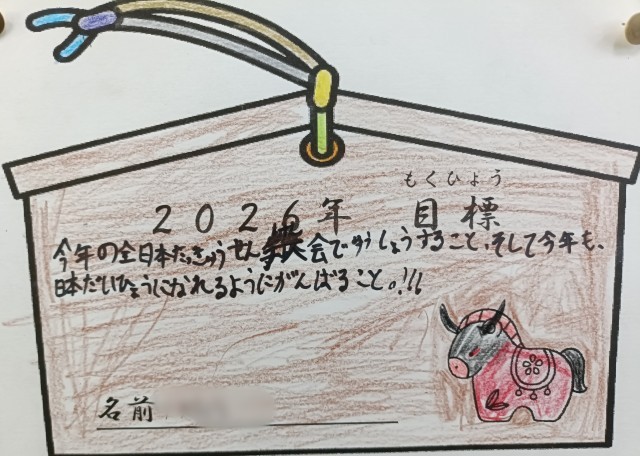 もくひょう
2026年 目標
今年の全日本たっきゅうせん会でゆうしょうすること、そして今年も、
日本だいひょうになれるようにがんばること。!!!
名前